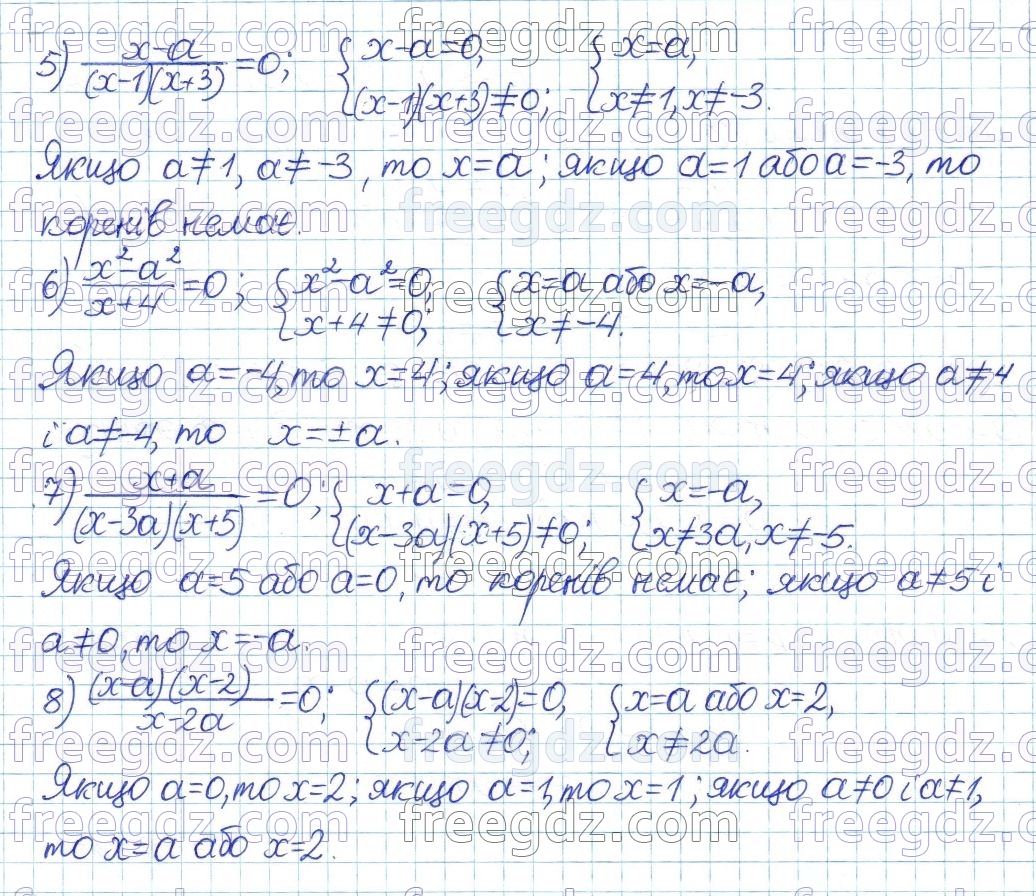 5) (x-a)/((x-1)(x+3)) = 0; { x-a=0, (x-1)(x+3)≠0; { x=a, x≠1, x≠-3.
Якщо a≠1, a≠-3, то x=a; якщо a=1 або a=-3, то
коренів немає.
6) (x²-a²)/(x+4) = 0; { x²-a²=0, x+4≠0; { x=a або x=-a, x≠-4.
Якщо a=-4, то x=4; якщо a=4, то x=4; якщо a≠4
і a≠-4, то x=±a.
7) (x+a)/((x-3a)(x+5)) = 0; { x+a=0, (x-3a)(x+5)≠0; { x=-a, x≠3a, x≠-5.
Якщо a=5 або a=0, то коренів немає; якщо a≠5 і
a≠0, то x=-a.
8) ((x-a)(x-2))/(x-2a) = 0; { (x-a)(x-2)=0, x-2a≠0; { x=a або x=2, x≠2a.
Якщо a=0, то x=2; якщо a=1, то x=1; якщо a≠0 і a≠1,
то x=a або x=2.
freegdz.com